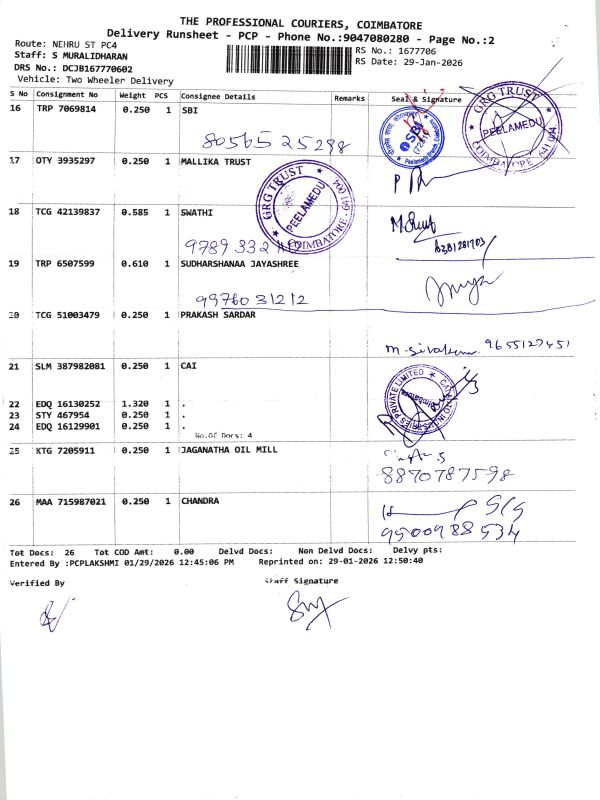 THE PROFESSIONAL COURIERS, COIMBATORE
Delivery Runsheet - PCP - Phone No.:9047080280 - Page No.:2
Route: NEHRU ST PC4
Staff: S MURALIDHARAN
DRS No.: DCJB167770602
Vehicle: Two Wheeler Delivery
RS No.: 1677706
RS Date: 29-Jan-2026
S No Consignment No Weight PCS Consignee Details Remarks Seal & Signature
16 TRP 7069814 0.250 1 SBI
80565 25298
SBI
GRG TRUST
PEELAMEDU
COIMBATORE - 641 004
17 OTY 3935297 0.250 1 MALLIKA TRUST
GRG TRUST
PEELAMEDU
COIMBATORE - 641 004
18 TCG 42139837 0.585 1 SWATHI
9789 332
19 TRP 6507599 0.610 1 SUDHARSHANAA JAYASHREE
9976031212
20 TCG 51003479 0.250 1 PRAKASH SARDAR
9655127451
21 SLM 387982081 0.250 1 CAI
CAI INDUSTRIES PRIVATE LIMITED
Coimbatore
22 EDQ 16130252 1.320 1 .
23 STY 467954 0.250 1 .
24 EDQ 16129901 0.250 1 .
No.Of Docs: 4
25 KTG 7205911 0.250 1 JAGANATHA OIL MILL
8870787598
26 MAA 715987021 0.250 1 CHANDRA
9500988534
Tot Docs: 26 Tot COD Amt: 0.00 Delvd Docs: Non Delvd Docs: Delvy pts:
Entered By :PCPLAKSHMI 01/29/2026 12:45:06 PM Reprinted on: 29-01-2026 12:50:40
Verified By Staff Signature